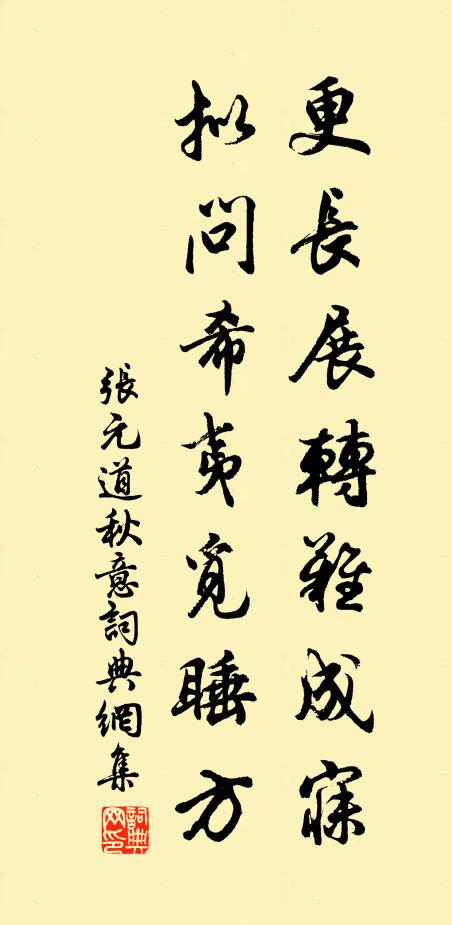 更長展轉難成寐
拟問希夷覓睡方
張元道秋意詞典網集
詞典網印